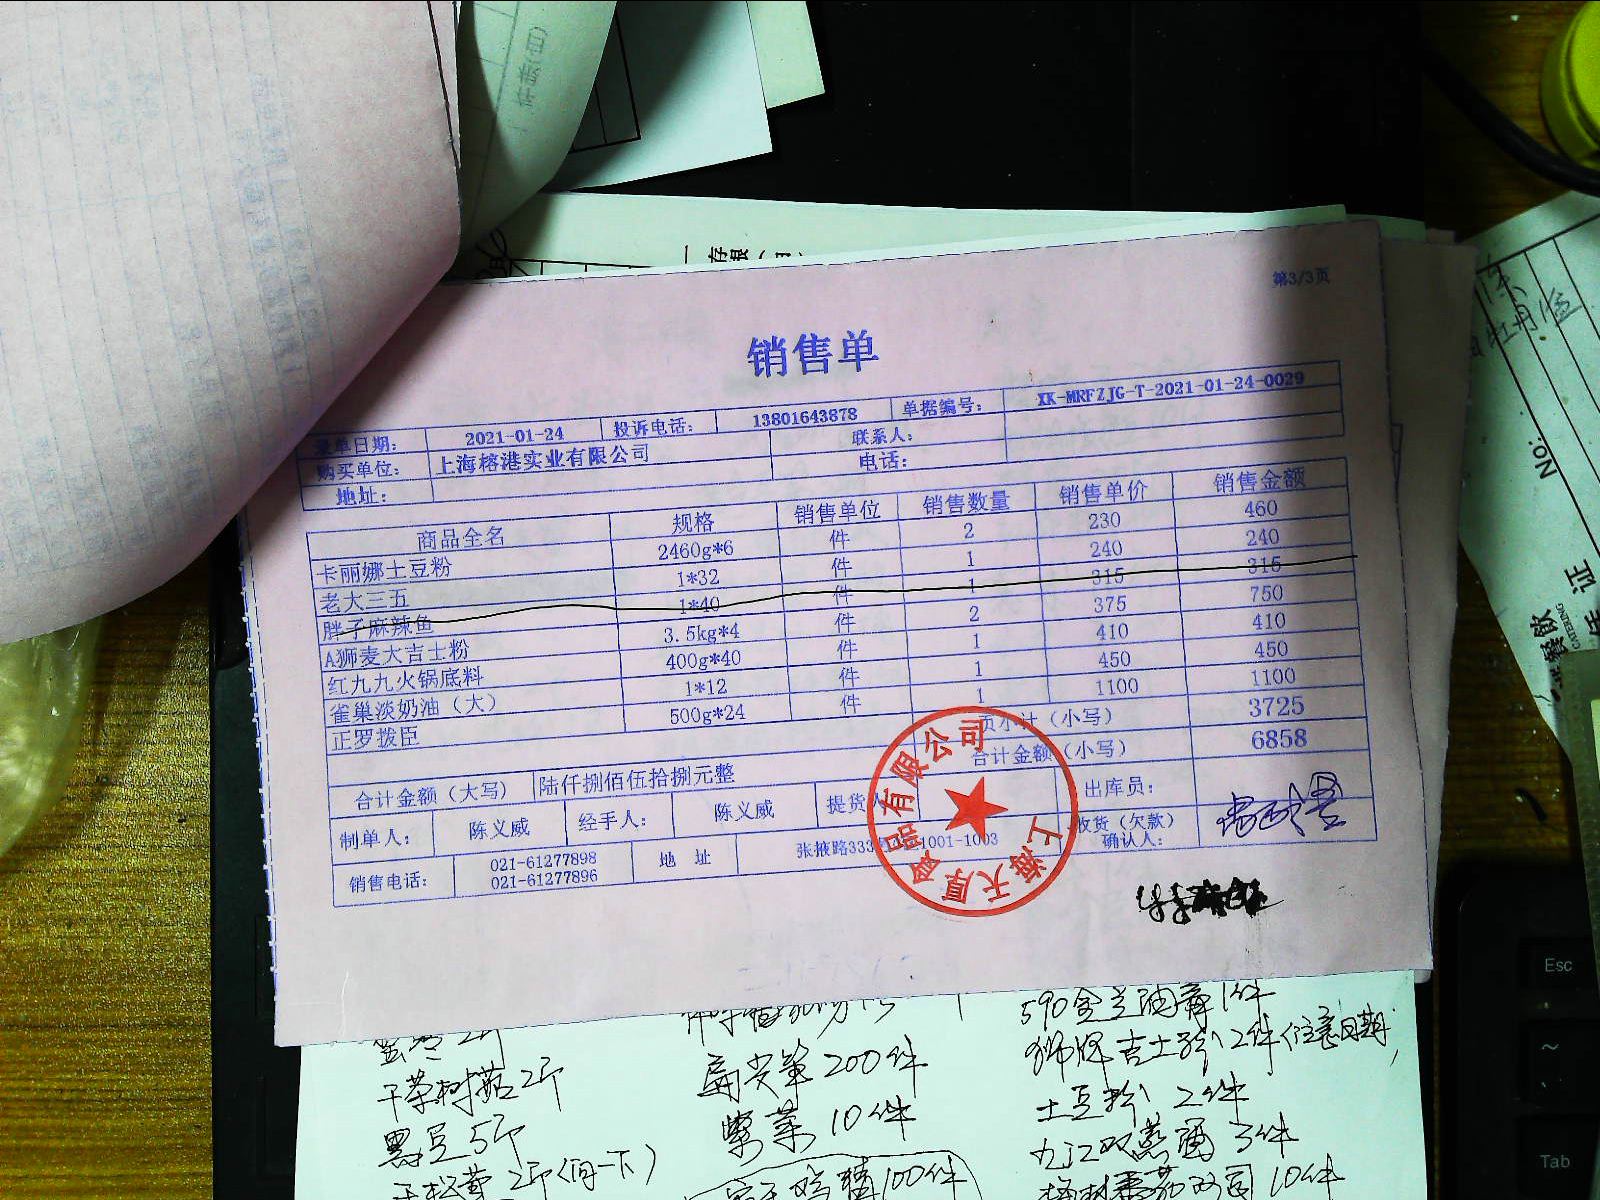 件数(值)
存根(
第3/3页
销售单
录单日期： 2021-01-24 投诉电话： 13801643878 单据编号： XK-MRFZJG-T-2021-01-24-0029
购买单位： 上海榕港实业有限公司 联系人：
地址： 电话：
商品全名 规格 销售单位 销售数量 销售单价 销售金额
卡丽娜土豆粉 2460g*6 件 2 230 460
老大三五 1*32 件 1 240 240
胖子麻辣鱼 1*40 件 1 315 315
A狮麦大吉士粉 3.5kg*4 件 2 375 750
红九九火锅底料 400g*40 件 1 410 410
雀巢淡奶油（大） 1*12 件 1 450 450
正罗拨臣 500g*24 件 1 1100 1100
页小计（小写） 3725
合计金额（大写） 陆仟捌佰伍拾捌元整 合计金额（小写） 6858
制单人： 陈义威 经手人： 陈义威 提货人 出库员：
销售电话： 021-61277898 021-61277896 地 址 张掖路333 1001-1003 收货（欠款）确认人：
上海天厚食品有限公司
No:
餐饮
CATERING
证
590金兰油膏1件
狮牌吉士粉12件(注意日期)
干茶树菇2斤
扁尖笋200件
土豆粉 2件
黑豆5斤
紫菜10件
九江双蒸酒3件
2斤(问一下)
100件
10件
Esc
~
Tab